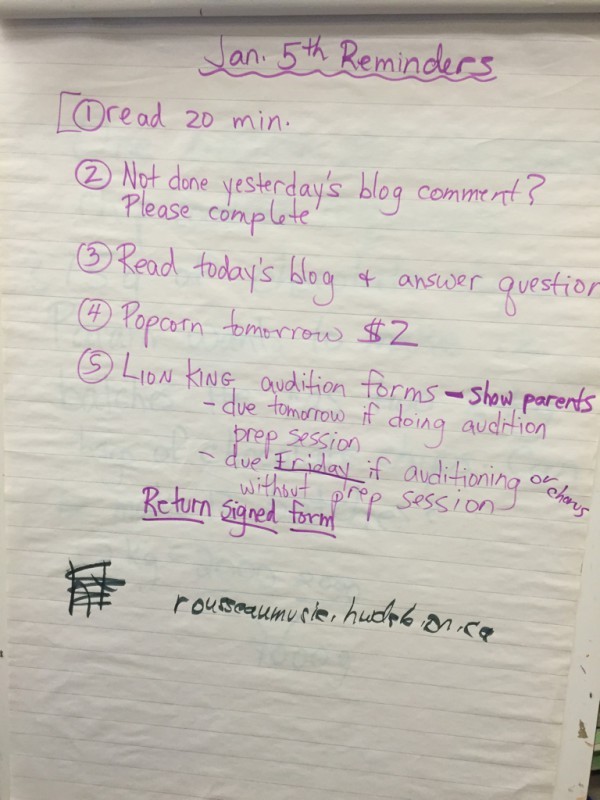 Jan. 5th Reminders
① read 20 min.
② Not done yesterday's blog comment?
Please complete
③ Read today's blog & answer question
④ Popcorn tomorrow $2
⑤ LION KING audition forms - show parents
- due tomorrow if doing audition
prep session
- due Friday if auditioning or chorus
without prep session
Return signed form